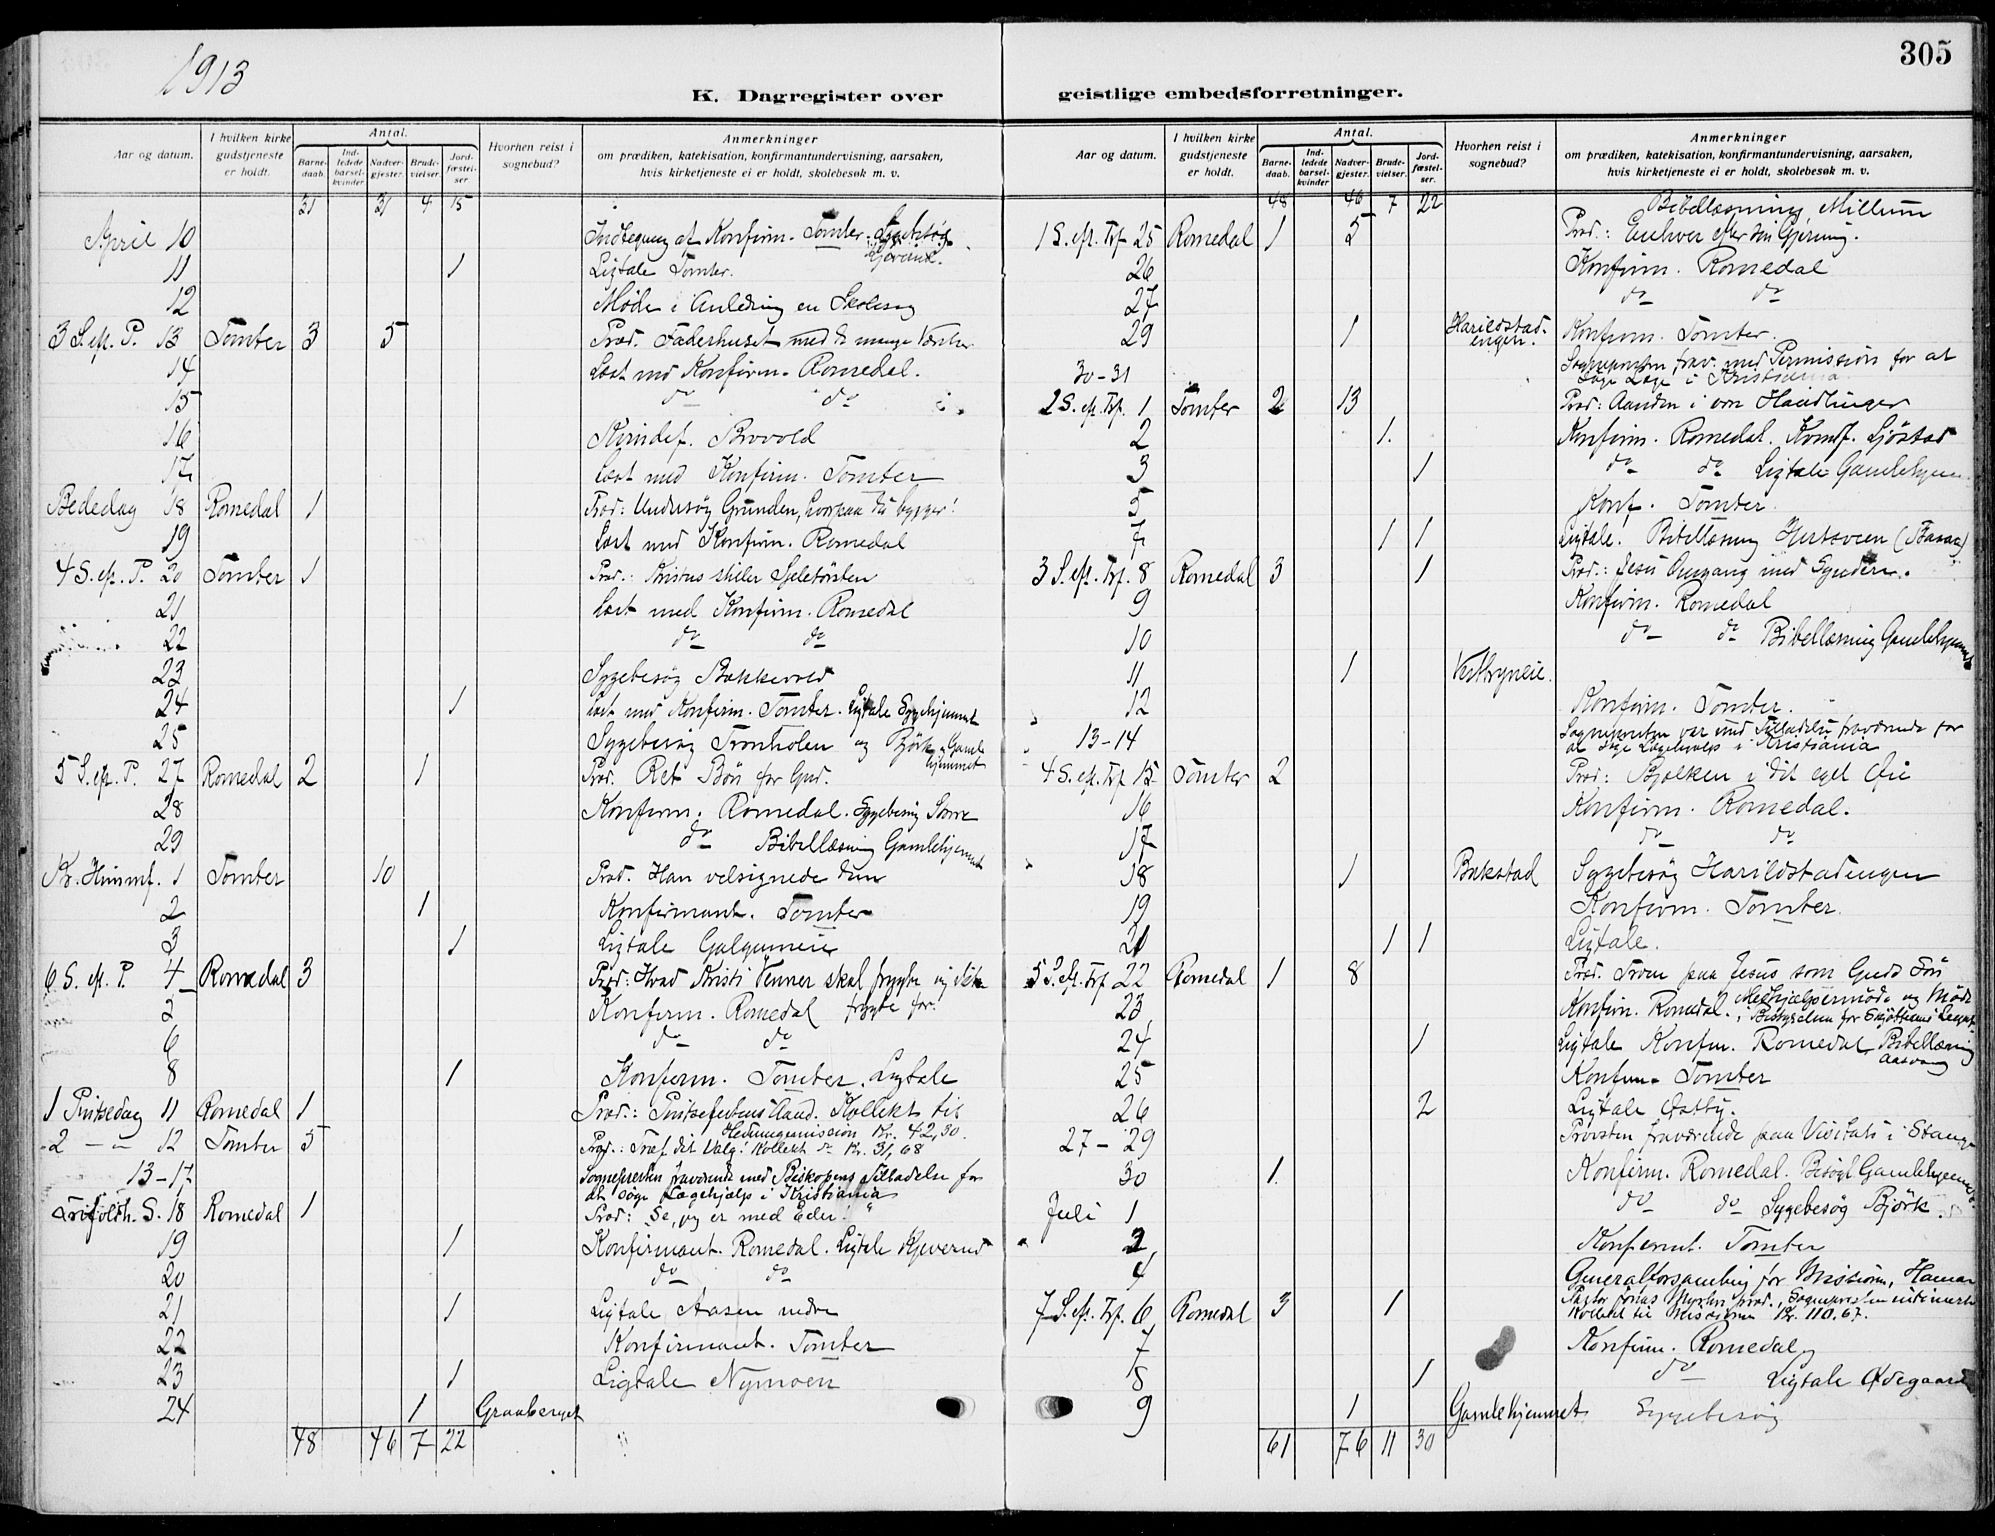 1913
305
K. Dagregister over
geistlige embedsforretninger.
Aar og datum.
I hvilken kirke gudstjeneste er holdt.
Antal.
Barne-daab.
Ind-ledede barsel-kvinder.
Nadver-gjester.
Brude-vielser.
Jord-fæstel-ser.
Hvorhen reist i sognebud?
Anmerkninger
om prædiken, katekisation, konfirmantundervisning, aarsaken,
hvis kirketjeneste ei er holdt, skolebesøk m. v.
31 31 4 15
April 10 Indtegning af Konfirm. Tomter.
11 1 Ligtale Tomter.
12 Møde i Anledning en Skolesag
3 S. ef. P. 13 Tomter 3 5 Præd. Faderhuset med de mange
14 Læst med Konfirm. Romedal.
15 do do
16 Brovold
17 Læst med Konfirm. Tomter
Bededag 18 Romedal 1 Præd: Undersøg Grunden, hvorpaa du bygger!
19 Læst med Konfirm. Romedal
4 S. ef. P. 20 Tomter 1 Præd.: Kristus stiller Sjeletørsten
21 Læst med Konfirm. Romedal
22 do do
23 Sygebesøg Bakkevold
24 1 Læst med Konfirm. Tomter. Ligtale Sygehjemmet
25 Sygebesøg Tronholen og Björk. Gamlehjemmet
5 S. ef. P. 27 Romedal 2 1 Præd. Ret Bön for Gud.
28 Konfirm. Romedal. Sygebesøg
29 do Bibellæsning Gamlehjemmet
Kr. Himmf. 1 Tomter 10 Præd. Han velsignede dem
2 1 Konfirmant. Tomter
3 1 Ligtale
6 S. ef. P. 4 Romedal 3 Præd: Hvad Kristi Venner skal frygte og ikke frygte for.
Konfirm. Romedal
6 do do
8 1 Konfirm. Tomter. Ligtale
1 Pintsedag 11 Romedal 1 Præd.: Pintsefestens Aand. Kollekt til Hedningemission Kr. 42,30.
2 - " - 12 Tomter 5 Præd.: Træf dit Valg! Kollekt do Kr. 31,68
13-17 Sognepresten fraværende med Biskopens Tilladelse for
at søge Lægehjælp i Kristiania
Trifoldh. S. 18 Romedal 1 Præd: "Se, jeg er med Eder!"
19 1 Konfirmant. Romedal. Ligtale Kjeverud
20 do do
21 1 Ligtale Aasen nedre
22 Konfirmant. Tomter
23 1 Ligtale Nymoen
24 1 Graaberget
48 46 7 22
Aar og datum.
I hvilken kirke gudstjeneste er holdt.
Antal.
Barne-daab.
Ind-ledede barsel-kvinder.
Nadver-gjester.
Brude-vielser.
Jord-fæstel-ser.
Hvorhen reist i sognebud?
Anmerkninger
om prædiken, katekisation, konfirmantundervisning, aarsaken,
hvis kirketjeneste ei er holdt, skolebesøk m. v.
48 46 7 22 Bibellæsning, Millum
1 S. ef. Trf. 25 Romedal 1 5 Præd.: Enhver efter sin Gjerning.
26 Konfirm. Romedal
27 do do
29 1 Harildstadengen. Konfirm. Tomter.
30-31 Sognepresten frav. med Permission for at
søge Læge i Kristiania
2 S. ef. Trf. 1 Tomter 2 13 Præd: Aanden i vore Handlinger
2 1 Konfirm. Romedal. Sjöstad
3 1 do do Ligtale Gamlehjem
5 Konf. Tomter
7 1 1 Ligtale. Bibellæsning
3 S. ef. Trf. 8 Romedal 3 1 Præd.: Jesu Omgang med Syndere.
9 Konfirm. Romedal
10 do do Bibellæsning Gamlehjemmet
11 1
12 Konfirm. Tomter.
13-14 Sognepresten var med Tilladelse fraværende for
at søge Lægehjælp i Kristiania
4 S. ef. Trf. 15 Tomter 2 Præd: Bjælken i dit eget Öie
16 Konfirm. Romedal.
17 do do
18 1 Bakstad Sygebesøg Harildstadengen
19 Konfirm. Tomter.
21 1 1 Ligtale.
5 S. ef. Trf. 22 Romedal 1 8 Præd. Troen paa Jesus som Guds Sön
23 Konfirm. Romedal. Medhjælpermöde og Möde
i Bestyrelsen for Legat
24 1 Ligtale Konfm. Romedal Bibellæsning
25 Konfirm. Tomter
26 2 Ligtale Østby.
27-29 Provsten fraværende paa Visitats i Stange
30 1 Konfirm. Romedal. Besøgt Gamlehjemmet
Juli 1 do do Sygebesøg Björk.
2 Konfirmt. Tomter
4 Generalforsamling for Missionen, Hamar
7 S. ef. Trf. 6 Romedal 3 1 Pastor Jonas præd., Sognepresten
Kollekt til Missionen Kr. 110,67.
7 Konfirm. Romedal
8 1 do Ligtale Ødegaard
9 1 Gamlehjemmet Sygebesøg
61 76 11 30